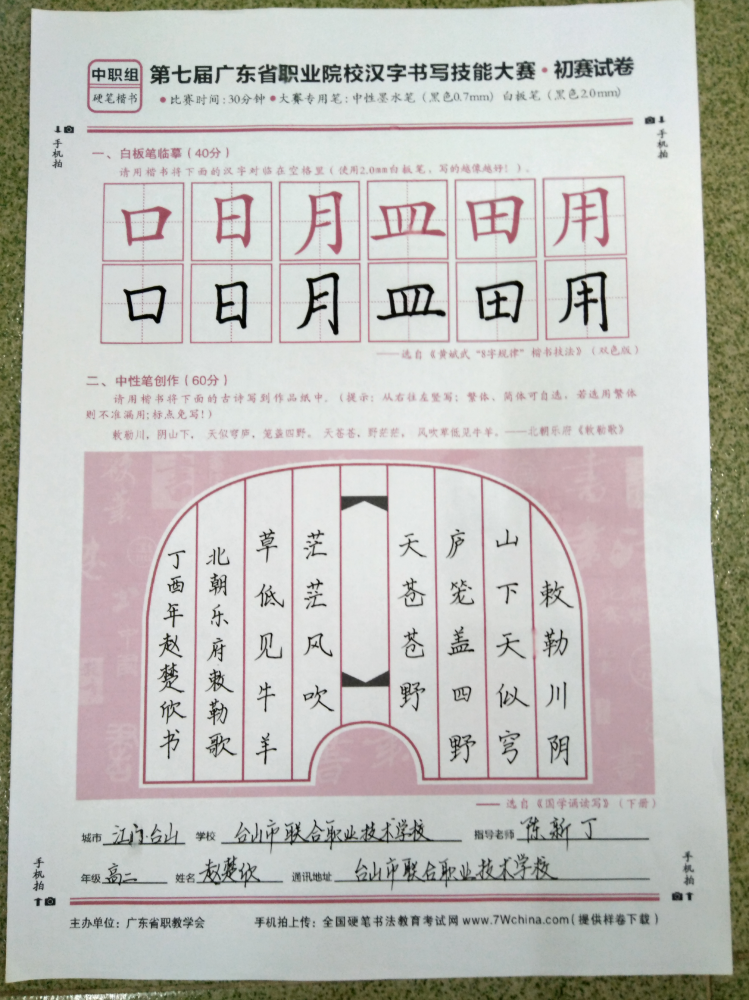 中职组
硬笔楷书
第七届广东省职业院校汉字书写技能大赛·初赛试卷
●比赛时间:30分钟 ●大赛专用笔:中性墨水笔（黑色0.7mm）白板笔（黑色2.0mm）
手机拍
手机拍
一、白板笔临摹（40分）
请用楷书将下面的汉字对临在空格里（使用2.0mm白板笔，写的越像越好！）。
口 日 月 皿 田 用
口 日 月 皿 田 用
——选自《黄斌武“8字规律”楷书技法》（双色版）
二、中性笔创作（60分）
请用楷书将下面的古诗写到作品纸中。（提示：从右往左竖写；繁体、简体可自选，若选用繁体
则不准漏用;标点免写！）
敕勒川，阴山下， 天似穹庐，笼盖四野。 天苍苍，野茫茫， 风吹草低见牛羊。——北朝乐府《敕勒歌》
敕勒川阴
山下天似穹
庐笼盖四野
天苍苍野
茫茫风吹
草低见牛羊
北朝乐府敕勒歌
丁酉年赵楚欣书
—— 选自《国学诵读写》（下册）
城市 江门台山 学校 台山市联合职业技术学校 指导老师 陈新丁
年级 高二 姓名 赵楚欣 通讯地址 台山市联合职业技术学校
手机拍
手机拍
主办单位：广东省职教学会 手机拍上传：全国硬笔书法教育考试网 www.7Wchina.com（提供样卷下载）